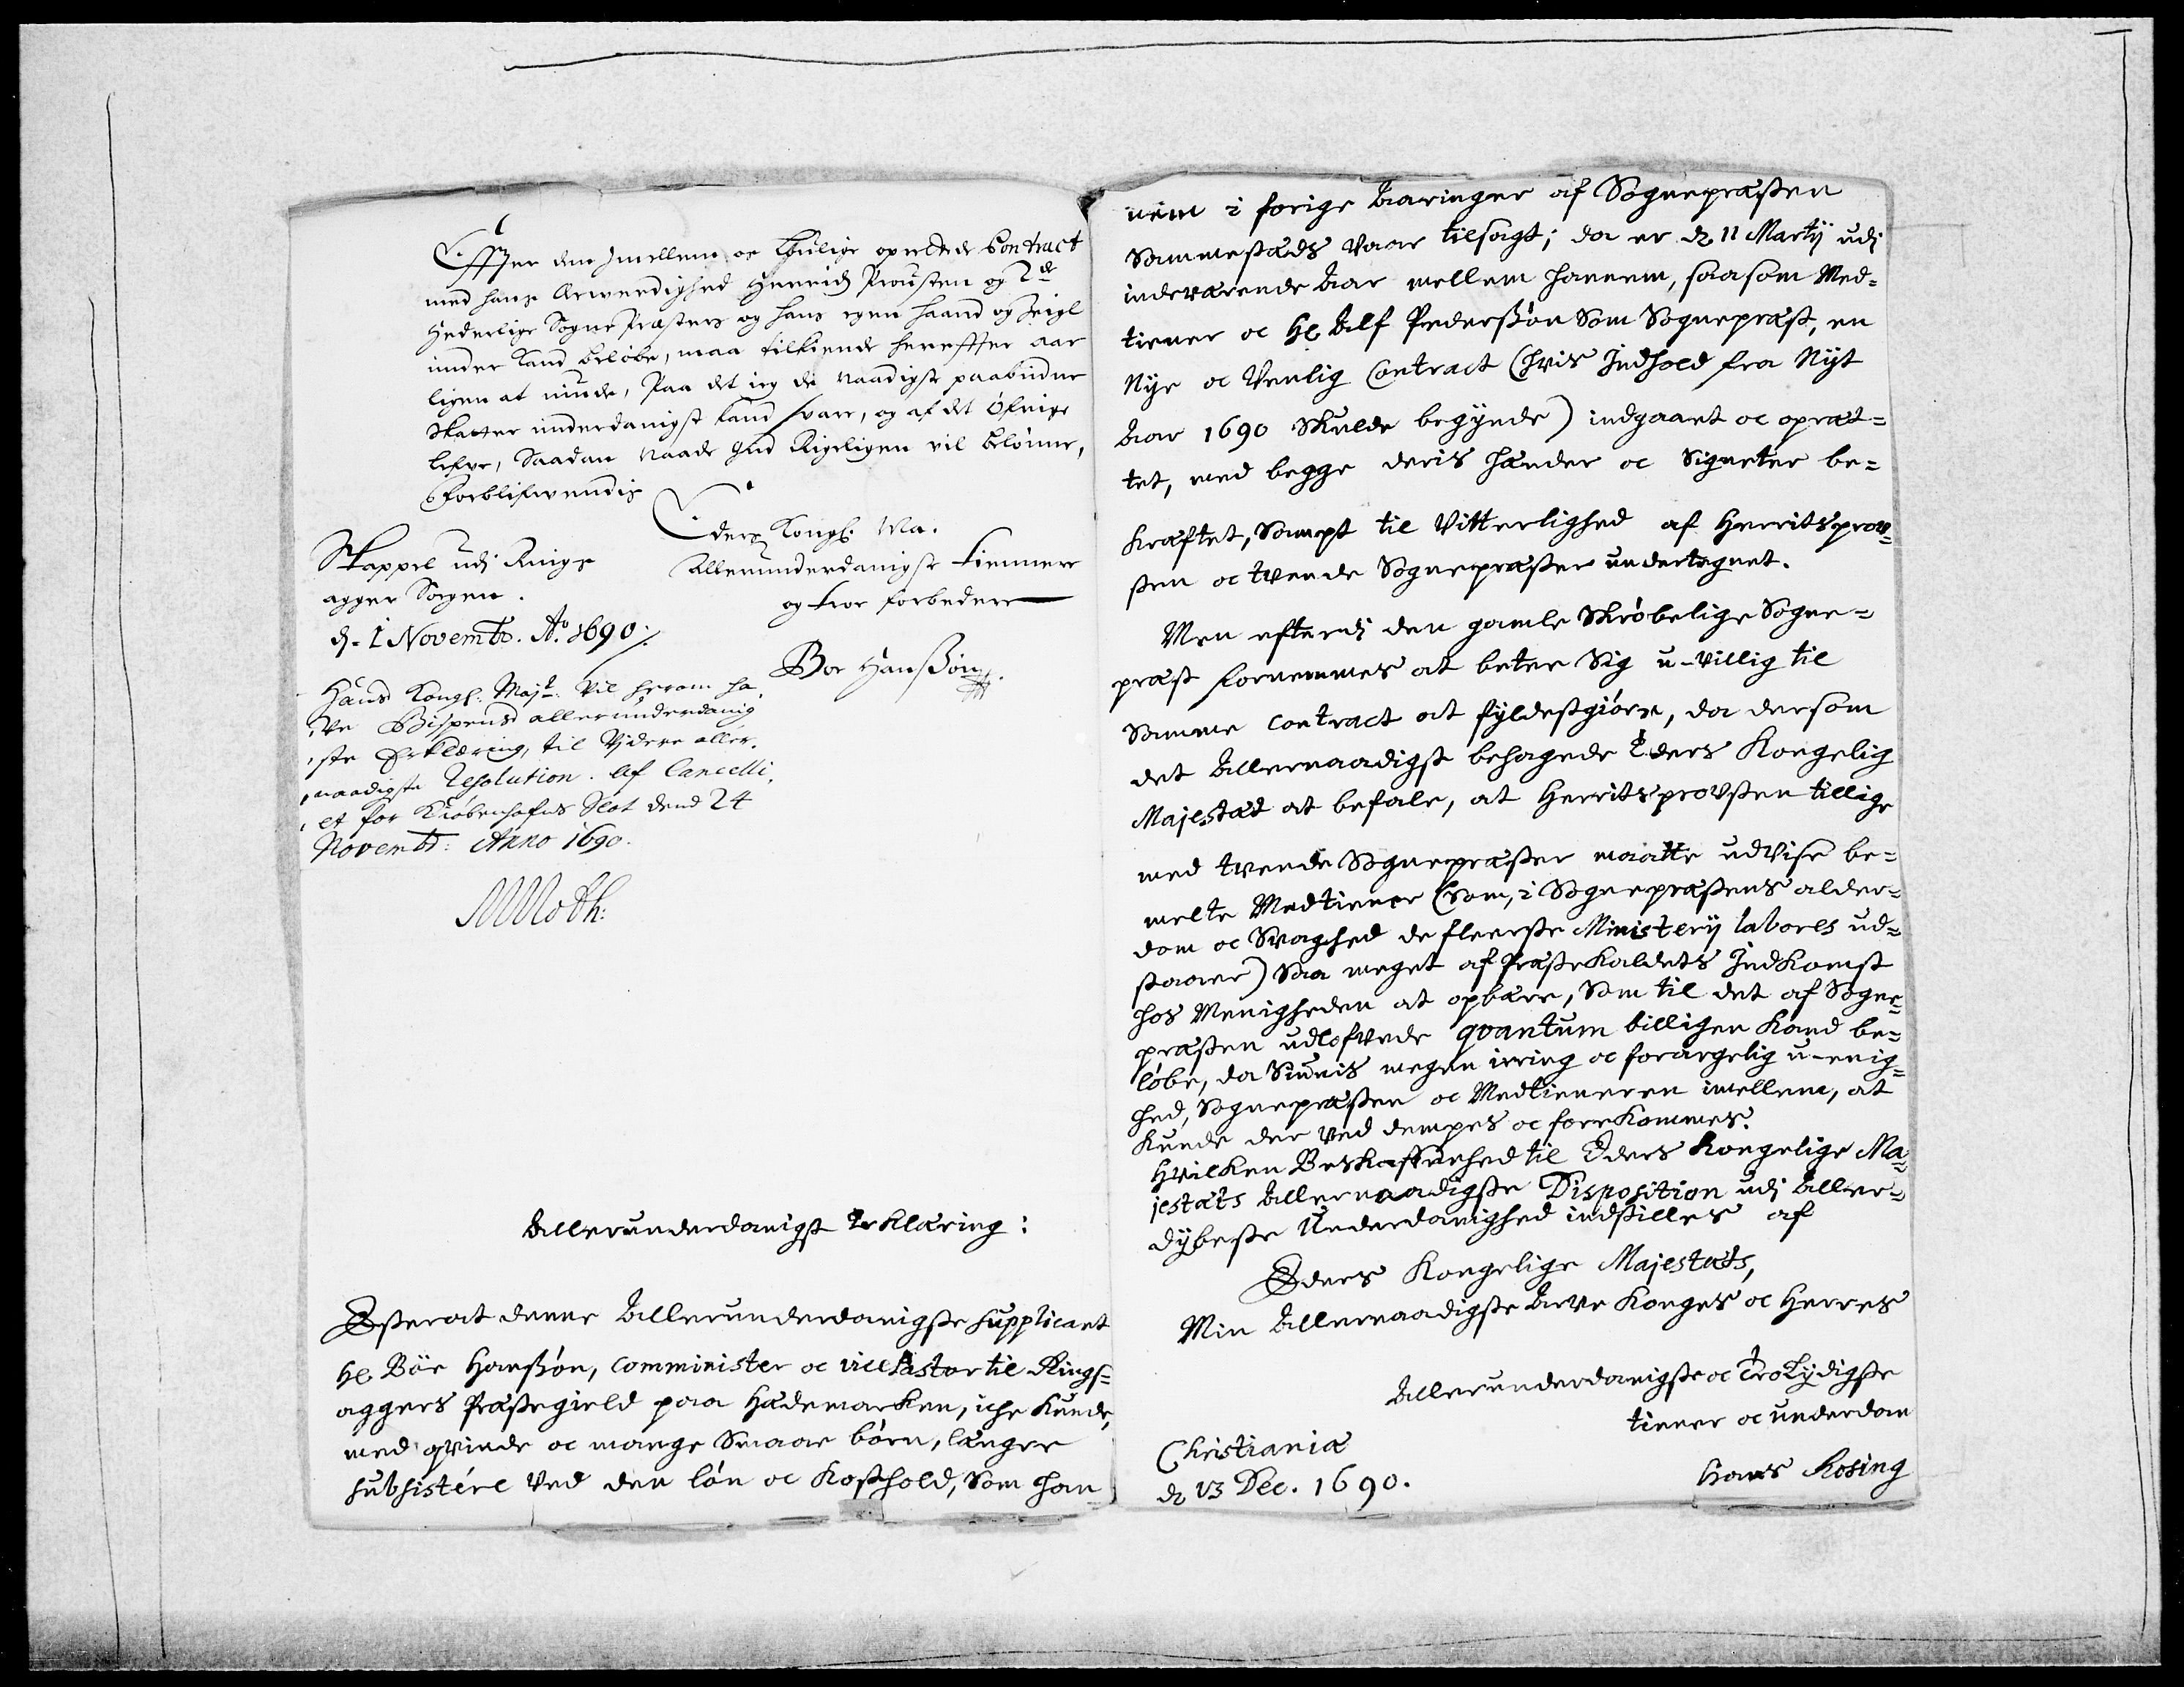 Effter den Imellem os Christlige oprettede Contract
med hans Ærwerdighed Herrids Prousten og 2de
Hederlige Sogne Præsters og hans egen Haand og Zeigl
under kand beløbe, maa tilkiende hereffter aar
ligen at niude, Paa det ieg de Naadigste paabudne
Skatter underdanigst kand svare, og af det Øfrige
lefve, Saadan Naade Gud Rigeligen vil belønne,
Forblifwendis
Eders Kongl: Ma.
Allerunderdanigste tiennere
og troe forbedere
Skappel udj Rings
agger Sogen.
d. 1 Novembr. Ao. 1690 ⁒
Boe Hanßøn
Hans Kongl: Majt: vil herom ha,
,ve Bispens allerunderdanig
,ste Erklæring, til Videre aller,
,naadigste Resolution. Af Cancelli,
,et for Kiøbenhafns Slot dend 24
Novembr: Anno 1690.
MMoth:
Allerunderdanigst Erklæring:
Efterat denne Allerunderdanigste Supplicant
Hr Böe Hanßøn, Comminister oc vice Pastor til Rings=
aggers Præstegield paa Hædemarken, iche kunde,
med qvinde oc mange Smaae børn, længer
subsistére ved den løn oc kosthold, Som han=
nem i forige Aaringer af Sognepræsten
Sammestæds vaar tilsagt; da er d 11 Martij udj
indeværende Aar mellem hannem, saasom Med=
tiener oc Hr Alf Pederßøn Som Sognepræst, en
Nye oc Venlig Contract (hvis Indhold fra Nyt
Aar 1690 Skulde begynde) indgaaet oc opræt=
tet, med begge deris hænder oc Signeter be=
kræftet, Sampt til Vitterlighed af Herritsprov=
sten oc tvende Sognepræster undertegnet.
Men efterdj den gamle Skrøbelige Sogne=
præst fornemmes at betee Sig u-villig til
Samme contract at fyldestgiøre, da dersom
det Allernaadigst behagede Eders Kongelig
Majestæt at befale, at Herritsprovsten tillige
med tvende Sognepræster maatte udvise be=
melte Medtiener (som, i Sognepræstens alder=
dom oc Svaghed de fleerste Ministerij labores ud=
staaer) Saa meget af Præstekaldets Indkomst
hos Menigheden at opbære, Som til det af Sogne=
præsten udlofvede qvantum billigen kand be=
løbe, da Siunis megen irring oc forargelig u-enig=
hed, Sognepræsten oc Medtieneren imellem, at
kunde der ved dempes oc forekommes.
Hvilken Beskaffenhed til Eders Kongelige Ma=
jestæts Allernaadigste Disposition udj Aller=
dybeste Underdanighed indstilles af
Eders Kongelige Majestæts,
Min Allernaadigste Arve Konges oc Herres
Allerunderdanigste oc Troelydigste
tiener oc underdan
Christiania
d 13 Dec. 1690.
Hans Rosing